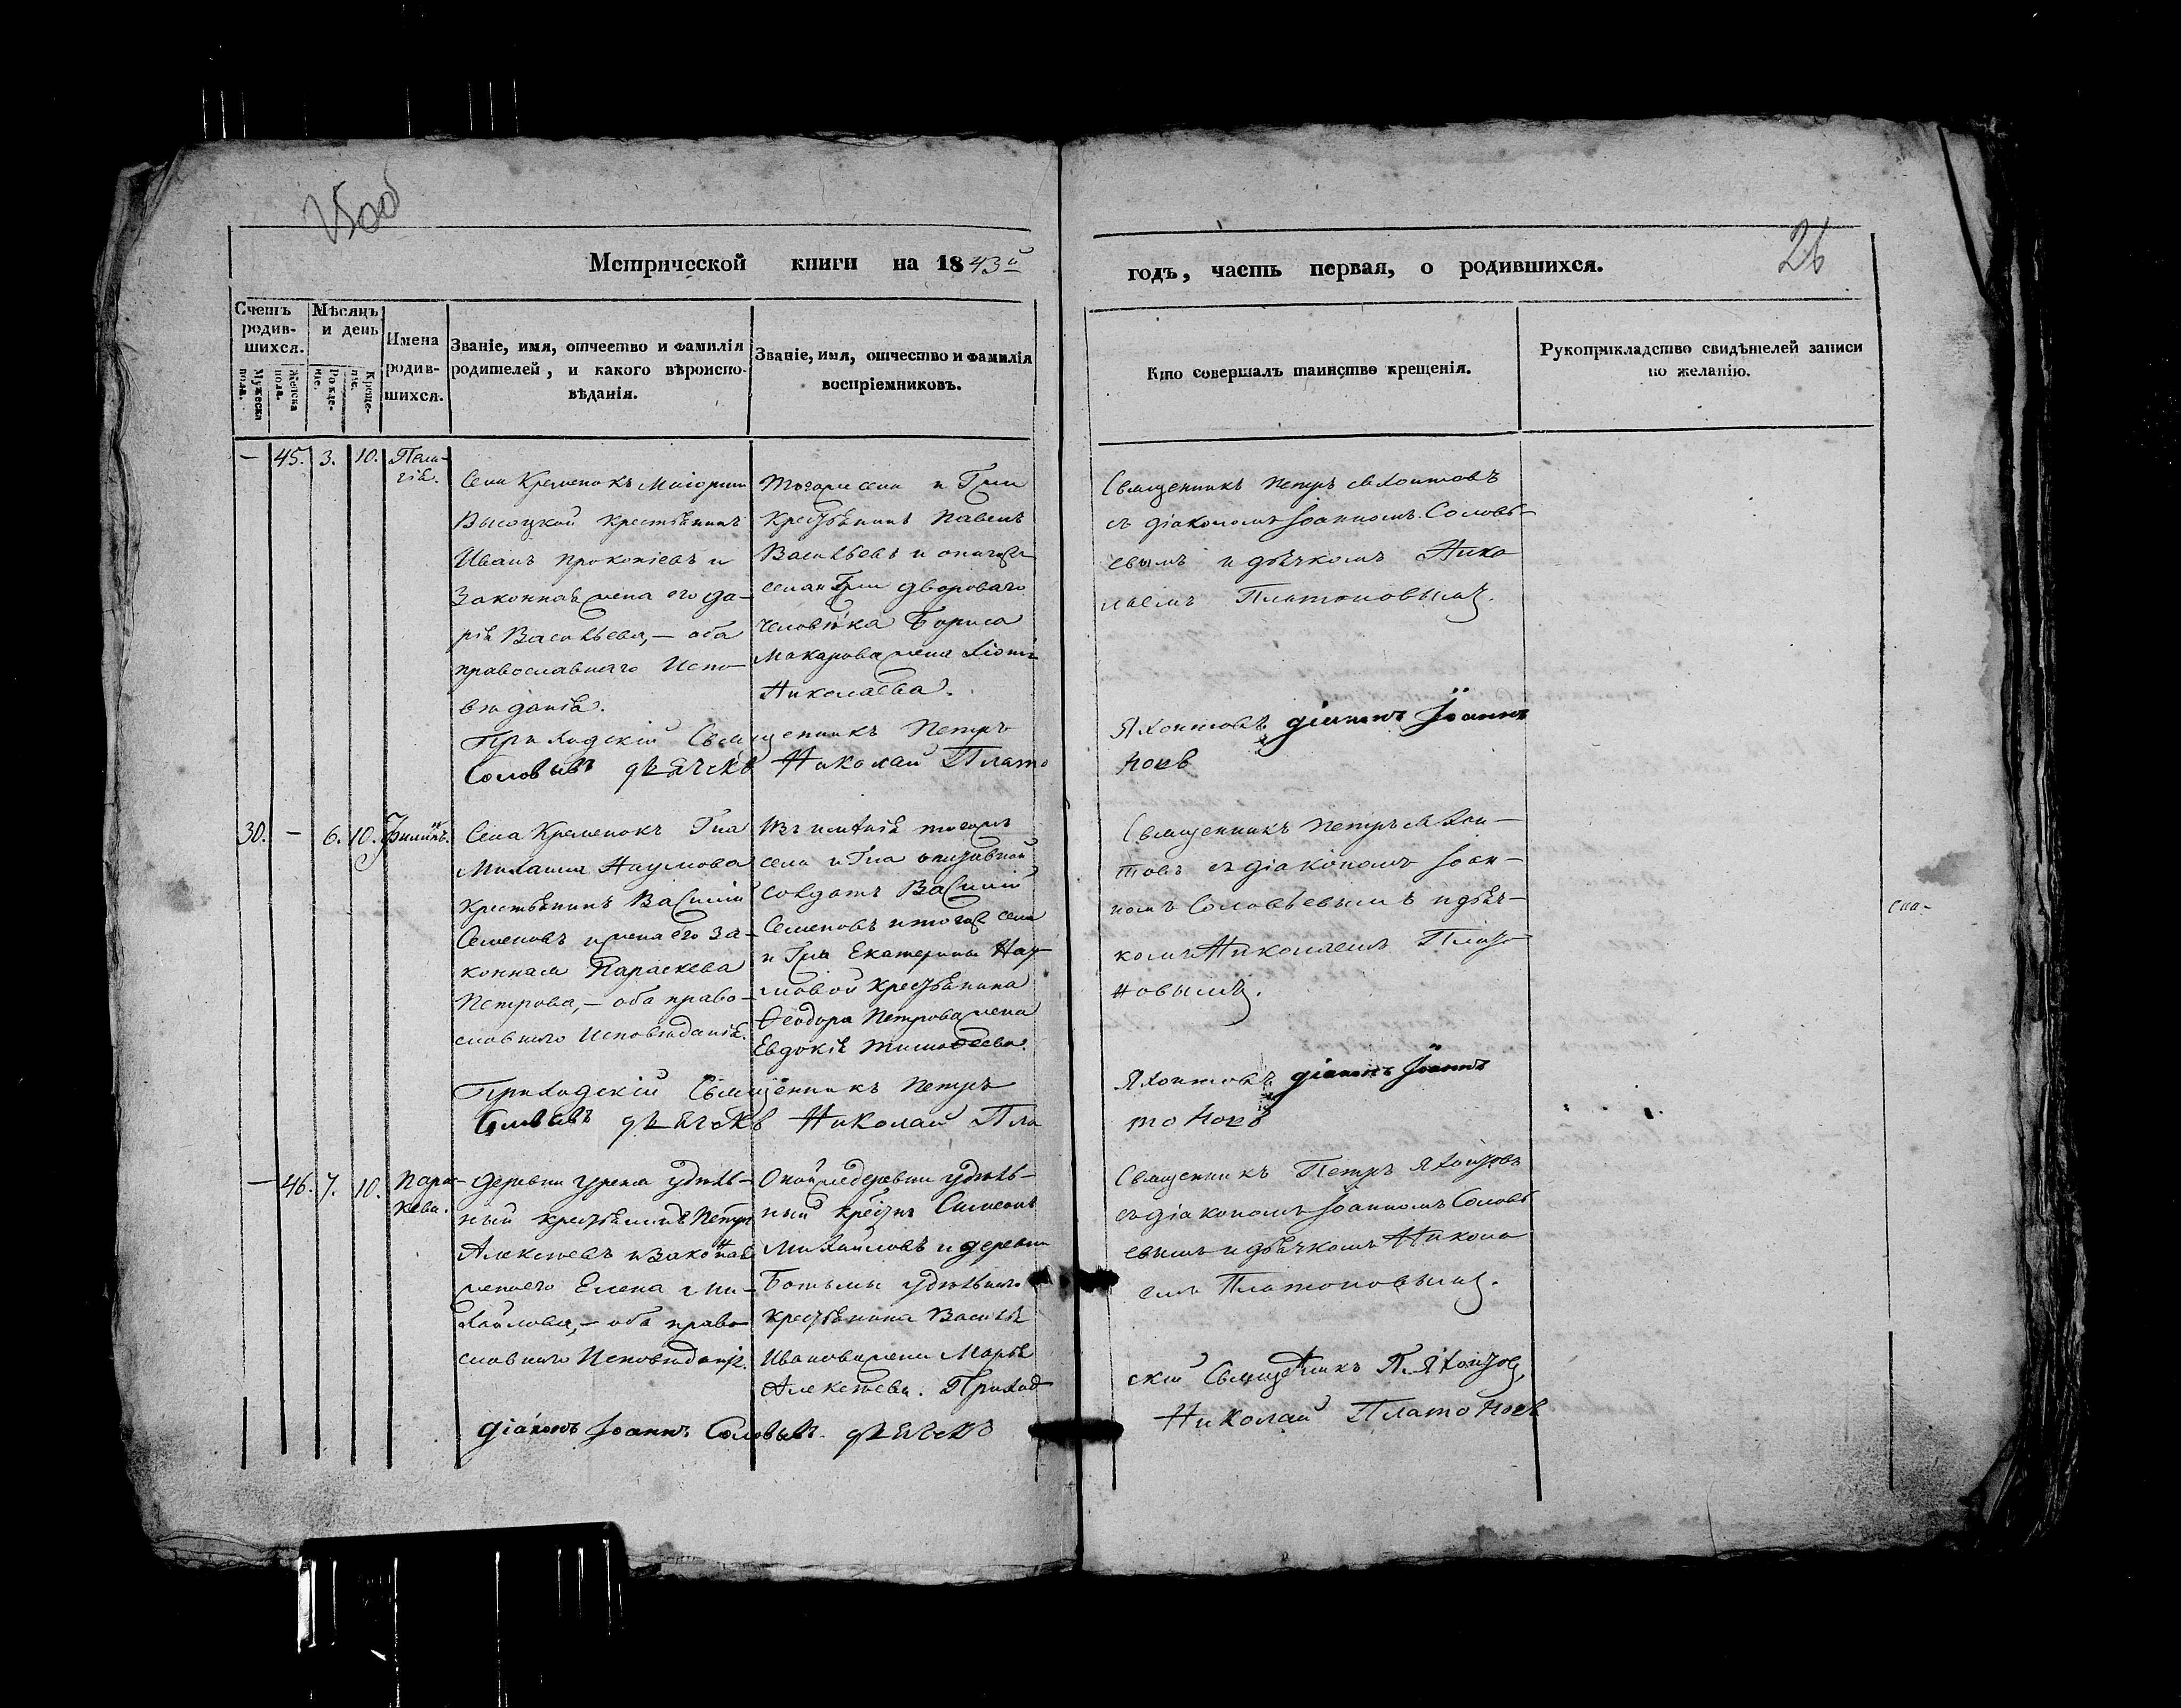 26
Метрической книги на 1843й
годъ, часть первая, о родившихся.
Счетъ родив-
шихся.
Мужеска пола.
Женска пола.
Мѣсяцъ и день
Рожде-
ніе.
Креще-
ніе.
Имена
родив-
шихся.
Званіе, имя, отчество и фамилія
родителей, и какого вѣроиспо-
вѣданія.
Званіе, имя, отчество и фамилія
воспріемниковъ.
Кто совершалъ таинство крещенія.
Рукоприкладство свидѣтелей записи
по желанію.
— 45. 3. 10. Пела-
гія.
Села Кременокъ Маіорши
Высоцкой крестьянинъ
Иванъ Прокопіевъ и
законная жена его Да-
рія Васильева, — оба
православнаго Испо-
вѣданія.
Тогожъ села и Гжи
крестьянинъ Павелъ
Васильевъ и
села и Гжи двороваго
человѣка Бориса
Макарова жена
Николаева.
Священникъ Петръ Яхонтовъ
съ діакономъ Іоанномъ Соловь-
евымъ и дьячкомъ Нико
лаемъ Платоновымъ.
Приходскій Священникъ Петръ
Яхонтовъ діаконъ Іоаннъ
Соловьевъ дьячекъ Николай Плато
новъ
30. — 6. 10. Филиппъ.
Села Кременокъ Гна
Михаила Наумова
крестьянинъ Василій
Семеновъ и жена его за-
конная Параскева
Петрова, — оба право-
славнаго Исповѣданія.
Изъ имѣнія тогожъ
села и Гна
солдатъ Василій
Семеновъ и тогожъ села
и Гжи Екатерины Нау
мовой крестьянина
Ѳеодора Петрова жена
Евдокія Тимоѳеева.
Священникъ Петръ Яхон-
товъ съ діакономъ Іоан-
номъ Соловьевымъ и дьяч-
комъ Николаемъ Плато-
новымъ.
Приходскій Священникъ Петръ
Яхонтовъ діаконъ Іоаннъ
Соловьевъ дьячекъ Николай Пла
тоновъ
— 46. 7. 10. Пара-
кева.
Деревни Урена удѣль-
ный крестьянинъ Петръ
Алексѣевъ и законная
жена его Елена Ми-
хайлова, — оба право
славнаго Исповѣданія.
Оной же деревни удѣль-
ный Симеонъ
Михайловъ и деревни
Ботьмы удѣльнаго
крестьянина Василія
Иванова жена Марья
Алексѣева. Приход
Священникъ Петръ Яхонтовъ
съ діакономъ Іоанномъ Соловь
евымъ и дьячкомъ Никола
емъ Платоновымъ.
скій Священникъ П. Яхонтовъ,
діаконъ Іоаннъ Соловьевъ дьячекъ
Николай Платоновъ